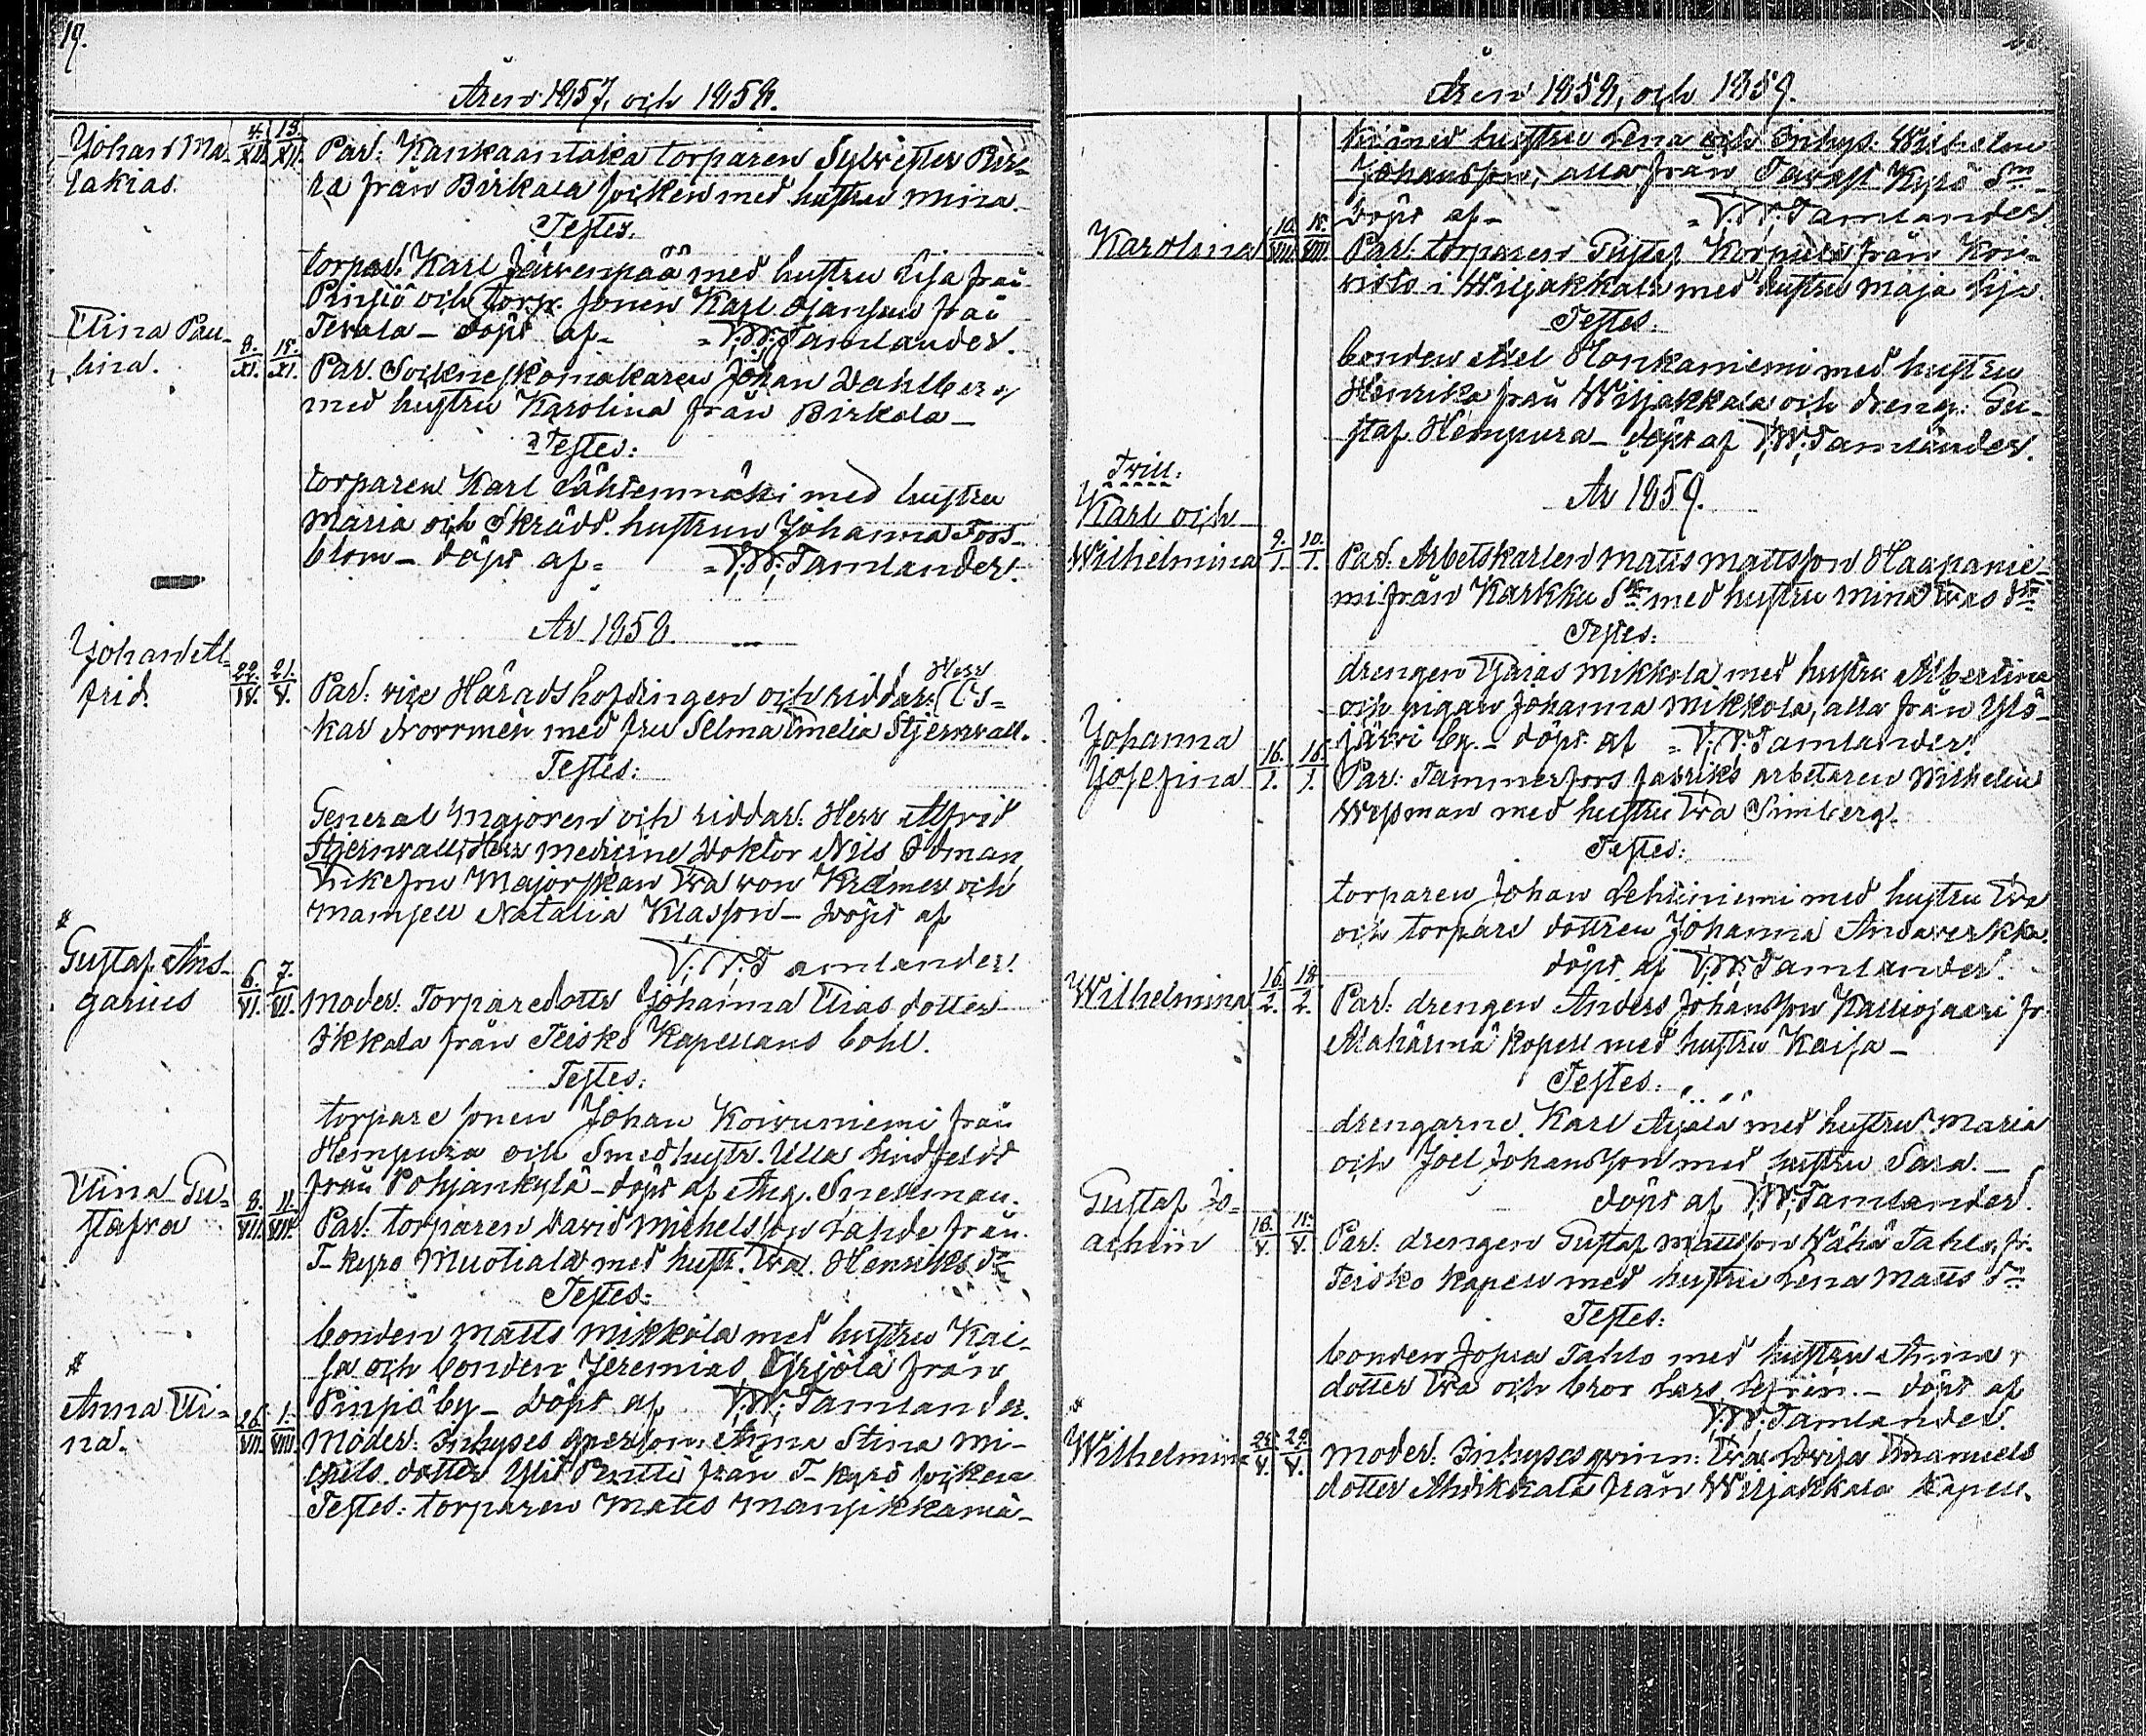 19.
Åren 1857, och 1858.
Johan Ma-
lakias.
4. 13.
XII. XII.
Par: Kankaantaka torparen Sylvester Pir-
ra från Birkala socken med hustru Mina.
Testes.
torpar. Karl Järvenpää med hustru Lisa från
Pinsiö och torp. sonen Karl Ojansuu från
Tevala - döpt af - V.W. Tamlander.
Elina Pau-
lina.
8. 15.
XI. XI.
Par. Sockneskomakaren Johan Dahlberg
med hustru Karolina från Birkala -
Testes:
torparen Karl Lähdenmäki med hustru
Maria och Skrädd. hustrun Johanna Fors-
blom - döpt af - V.W. Tamlander.
År 1858.
Johan Al-
frid.
22. 21.
IV. V.
Par: vice Häradshöfdingen och riddar: Herr Os-
kar Norrmén med fru Selma Emelia Stjernvall.
Testes:
General Majoren och riddar. Herr Alfrid
Stjernvall, Herr medicine Doktor Nils Idman,
Enkefru Majorskan Eva von Kræmer och
Mamsell Natalia Klasson - döpt af
V.W. Tamlander.
Gustaf Ans-
garius
6. 7.
VI. VI.
Moder: Torparedottr Johanna Elias dotter
Ikkala från Teisko Kapellans bohl.
Testes:
torpare sonen Johan Koivuniemi från
Hempura och Smedhustr. Ulla Lindfeldt
från Pohjankylä - döpt af Aug. Snellman.
Elina Gu-
stafva
8. 11.
VII. VII.
Par: torparen David Michelsson Lahde från
T-kyro Muotiala med hustr. Eva Henriks dr
Testes:
bonden Matts Mikkola med hustru Kai-
sa och bonden Jeremias Yrjölä från
Pinsiö by - döpt af V.W. Tamlander.
Anna Eli-
na.
26. 1.
VII. VIII.
Moder: Inhyses person: Anna Stina Mi-
chels dotter Yli Pentti från T-kyrö socken
Testes: torparen Matts Mansikkamä-
Åren 1858, och 1859.
ki med hustru Lena och Inhys: Wilhelm
Johansson, alla från Tavast Kyrö Sn
döpt af - V.W. Tamlander.
Karolina
10. 15.
VIII. VIII.
Par: torparen Gustaf Korpula från Koi-
visto i Wiljakkala med hustru Maja Lisa.
Testes:
bonden Axel Honkaniemi med hustru
Henrika från Wiljakkala och dreng. Gu-
staf Hempura - döpt af V.W. Tamlander.
År 1859.
Tvill:
Karl och
Wilhelmina
9. 10.
1. 1.
Par: Arbetskarlen Matts Mattsson Haapanie-
mi från Karkku Sn med hustru Mina Evas dr
Testes:
drengen Esaias Mikkola med hustru Albertina
och pigan Johanna Mikkola, alla från Ylö-
järvi by. - döpt af V.W. Tamlander.
Johanna
Josefina
16. 16.
1. 1.
Par: Tammerfors fabriks arbetaren Wilhelm
Wissman med hustru Eva Simberg.
Testes:
torparen Johan Lehtiniemi med hustru Eva
och torpare dottren Johanna Andaverkka.
döpt af V.W. Tamlander.
Wilhelmina
16. 18.
2. 2.
Par: drengen Anders Johansson Kalliojaari fr
Alahärmä kapell med hustru Kaisa -
Testes:
drengarne Karl Aijälä med hustru Maria
och Joel Johansson med hustru Sara. -
döpt af V.W. Tamlander.
Gustaf Jo-
achim
V. V.
Par: drengen Gustaf Mattsson Wähä Tahlo, fr.
Teisko kapell med hustru Lena Matts dr
Testes:
bonden Josua Tahlo med hustru Anna,
dotter Eva och bror Lars Lefrén. - döpt af
V.W. Tamlander
Wilhelmina
V. V.
Moder: Inhyses qvinn: Eva Lovisa Emanuels
dotter Ahdikkala från Wiljakkala Kapell.